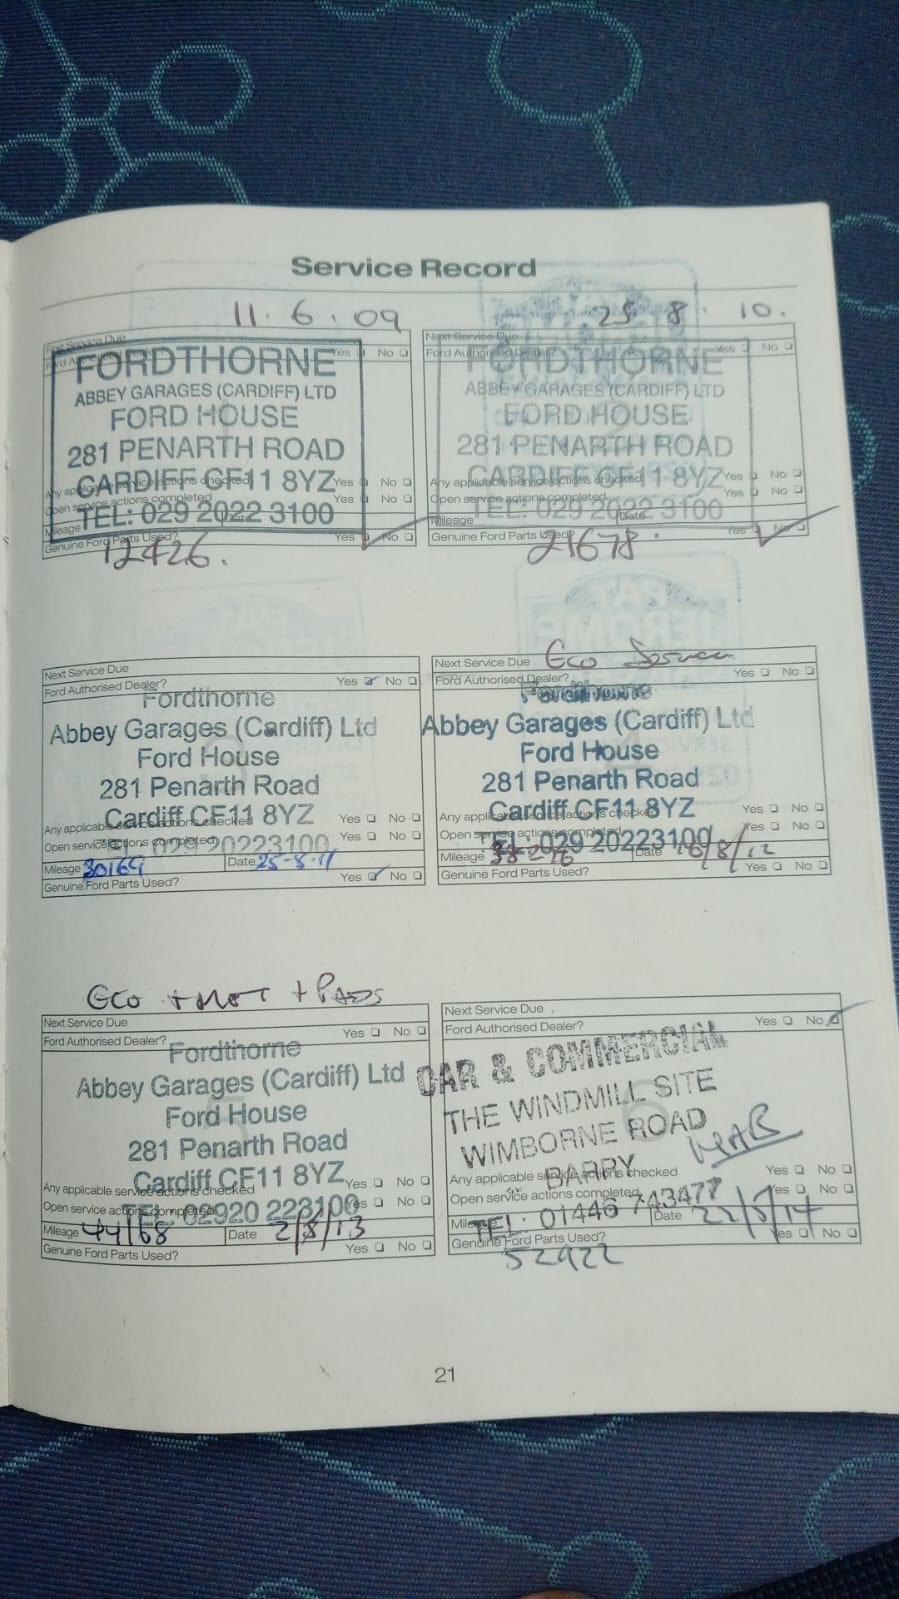 Service Record
11.6.09
Next Service Due
Yes No
FORDTHORNE
ABBEY GARAGES (CARDIFF) LTD
FORD HOUSE
281 PENARTH ROAD
CARDIFF CF11 8YZ
Any applicable service actions checked Yes No
Open service actions completed Yes No
TEL: 029 2022 3100
Mileage Date
Genuine Ford Parts Used? Yes No
12426.
25 8. 10.
Next Service Due
Ford Authorised Dealer? Yes No
FORDTHORNE
ABBEY GARAGES (CARDIFF) LTD
FORD HOUSE
281 PENARTH ROAD
CARDIFF CF11 8YZ
Any applicable service actions checked Yes No
Open service actions completed Yes No
TEL: 029 2022 3100
Mileage Date
Genuine Ford Parts Used? Yes No
21678.
Next Service Due
Ford Authorised Dealer? Yes No
Fordthorne
Abbey Garages (Cardiff) Ltd
Ford House
281 Penarth Road
Cardiff CF11 8YZ
Any applicable service actions checked Yes No
Open service actions completed Yes No
Tel: 029 20223100
Mileage 30169 Date 25-8-11
Genuine Ford Parts Used? Yes No
Next Service Due Eco Service
Ford Authorised Dealer? Yes No
Fordthorne
Abbey Garages (Cardiff) Ltd
Ford House
281 Penarth Road
Cardiff CF11 8YZ
Any applicable service actions checked Yes No
Open service actions completed Yes No
Tel: 029 20223100
Mileage Date 16/8/12
Genuine Ford Parts Used? Yes No
Eco + MOT + PADS
Next Service Due
Ford Authorised Dealer? Yes No
Fordthorne
Abbey Garages (Cardiff) Ltd
Ford House
281 Penarth Road
Cardiff CF11 8YZ
Any applicable service actions checked Yes No
Open service actions completed Yes No
Tel: 02920 223100
Mileage 44168 Date 2/8/13
Genuine Ford Parts Used? Yes No
Next Service Due
Ford Authorised Dealer? Yes No
CAR & COMMERCIAL
THE WINDMILL SITE
WIMBORNE ROAD
BARRY
Any applicable service actions checked Yes No
Open service actions completed Yes No
TEL: 01446 743477
Mileage Date
Genuine Ford Parts Used? Yes No
52922
21